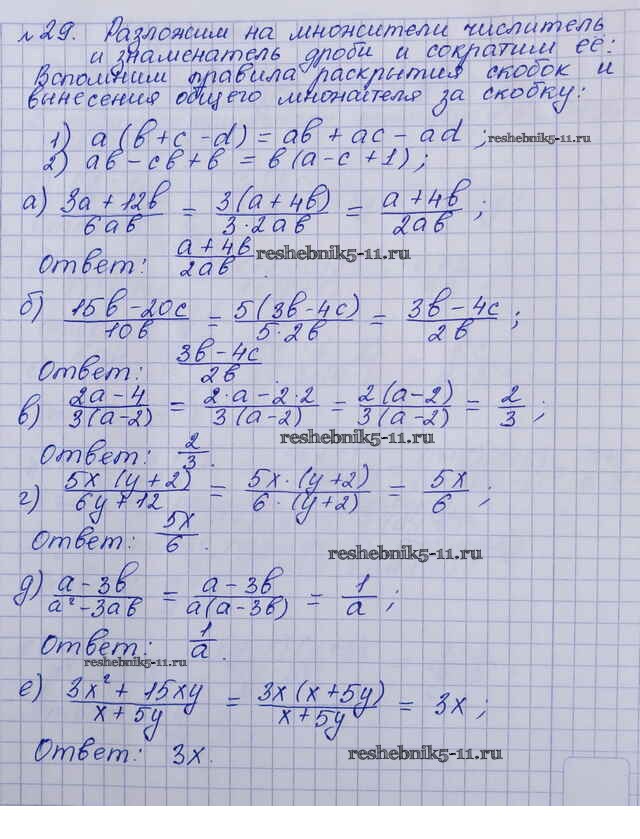 №29. Разложим на множители числитель
и знаменатель дроби и сократим её:
Вспомним правила раскрытия скобок и
вынесения общего множителя за скобку:
1) a(b+c-d) = ab + ac - ad; reshebnik5-11.ru
2) ab - cb + b = b(a-c+1);
а) (3a+12b)/(6ab) = (3(a+4b))/(3·2ab) = (a+4b)/(2ab);
Ответ: (a+4b)/(2ab). reshebnik5-11.ru
б) (15b-20c)/(10b) = (5(3b-4c))/(5·2b) = (3b-4c)/(2b);
Ответ: (3b-4c)/(2b).
в) (2a-4)/(3(a-2)) = (2·a-2·2)/(3(a-2)) = (2(a-2))/(3(a-2)) = 2/3;
reshebnik5-11.ru
Ответ: 2/3.
г) (5x(y+2))/(6y+12) = (5x·(y+2))/(6·(y+2)) = 5x/6;
Ответ: 5x/6.
reshebnik5-11.ru
д) (a-3b)/(a²-3ab) = (a-3b)/(a(a-3b)) = 1/a;
Ответ: 1/a.
reshebnik5-11.ru
е) (3x²+15xy)/(x+5y) = (3x(x+5y))/(x+5y) = 3x;
Ответ: 3x. reshebnik5-11.ru